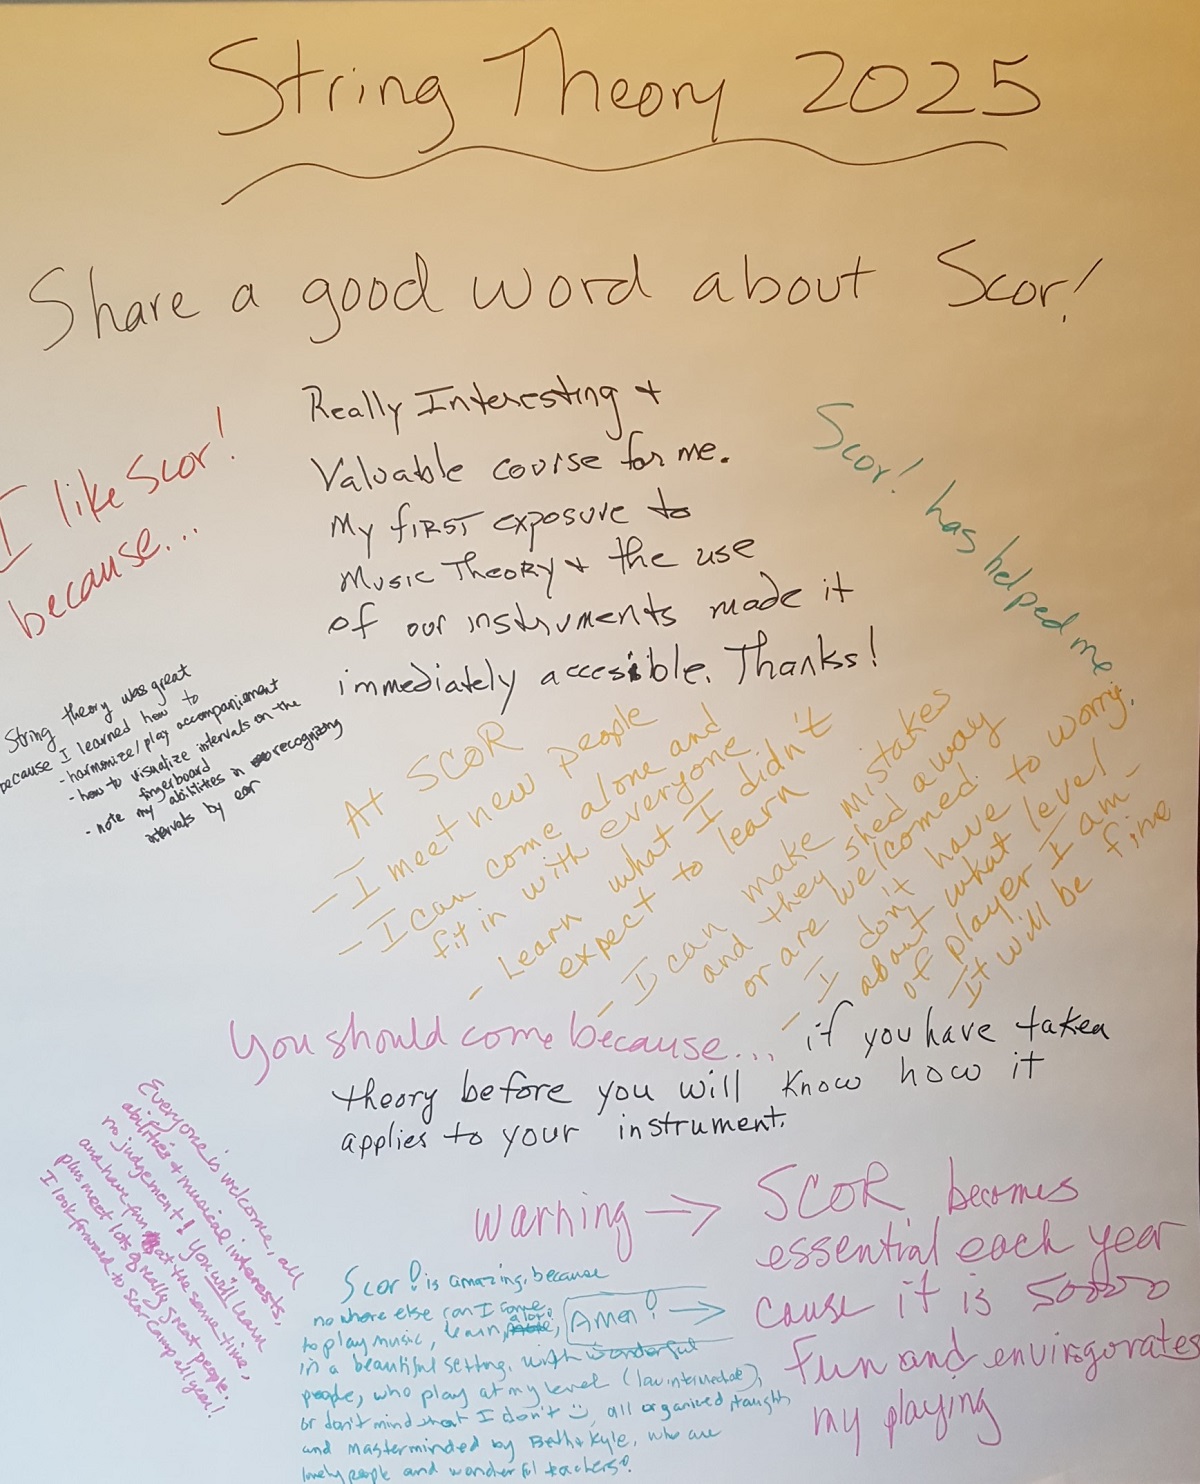 String Theory 2025
Share a good word about Scor!
I like Scor!
because...
Really Interesting +
Valuable course for me.
My first exposure to
Music Theory + the use
of our instruments made it
immediately accesible. Thanks!
Scor! has helped me
String theory was great
because I learned how to
- harmonize/play accompaniement
- how to visualize intervals on the
fingerboard
- note my abilities in recognizing
intervals by ear
At SCOR
- I meet new people
- I can come alone and
fit in with everyone
- Learn what I didn't
expect to learn
- I can make mistakes
and they shed away
or are welcomed.
- I don't have to worry
about what level
of player I am -
It will be fine
You should come because... if you have taken
theory before you will know how it
applies to your instrument.
Everyone is welcome, all
abilities + musical interests,
no judgement! You will learn
and have fun at the same time,
plus meet lots of really great people.
I look forward to Scor Camp all year!
Warning → SCOR becomes
essential each year
cause it is soooo
fun and envirgorates
my playing
Scor! is amazing, because
no where else can I come
to play music, learn, alone,
in a beautiful setting, with wonderful
people, who play at my level (low intermediate),
or don't mind that I don't :), all organized, taught
and masterminded by Beth + Kyle, who are
lovely people and wonderful teachers!
Amen! →